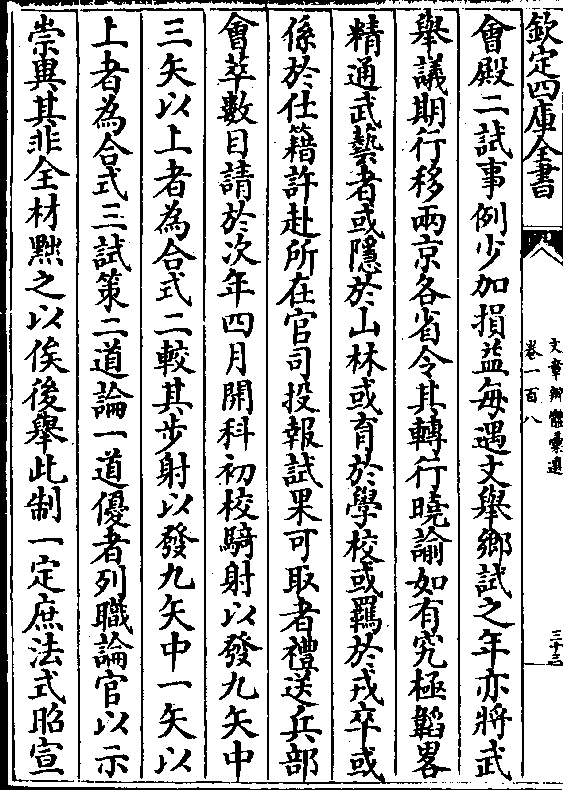 欽定四庫全書
文章辨體彙選
卷一百八
三十三
會殿二試事例少加損益每遇文舉鄉試之年亦將武
舉議期行移兩京各省令其轉行曉諭如有究極韜畧
精通武藝者或隱於山林或育於學校或羈於戎卒或
係於仕籍許赴所在官司投報試果可取者禮送兵部
會萃數目請於次年四月開科初校騎射以發九矢中
三矢以上者為合式二較其步射以發九矢中一矢以
上者為合式三試策二道論一道優者列職論官以示
崇與其非全材黜之以俟後舉此制一定庶法式昭宣